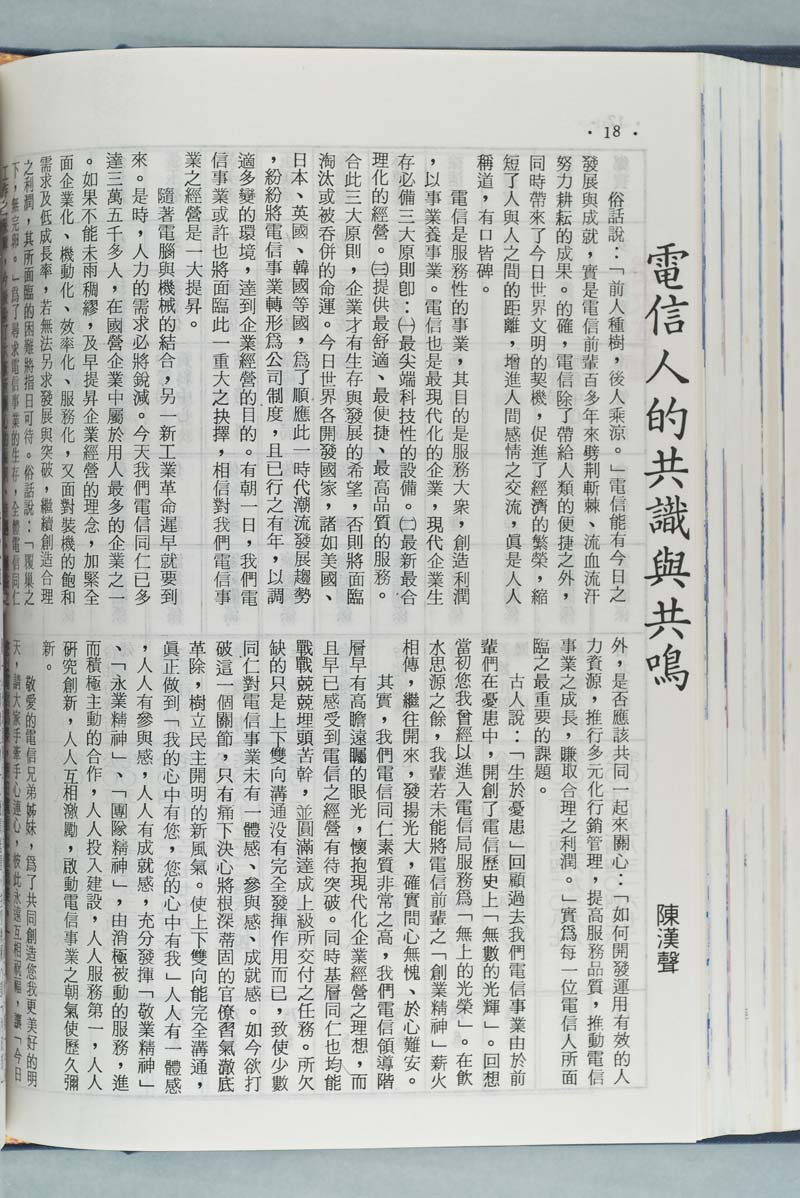 ・18・
電信人的共識與共鳴
陳漢聲
俗話說：「前人種樹，後人乘涼。」電信能有今日之
發展與成就，實是電信前輩百多年來劈荆斬棘、流血流汗
努力耕耘的成果。的確，電信除了帶給人類的便捷之外，
同時帶來了今日世界文明的契機，促進了經濟的繁榮，縮
短了人與人之間的距離，增進人間感情之交流，眞是人人
稱道，有口皆碑。
電信是服務性的事業，其目的是服務大衆，創造利潤
，以事業養事業。電信也是最現代化的企業，現代企業生
存必備三大原則卽：㈠最尖端科技性的設備。㈡最新最合
理化的經營。㈢提供最舒適、最便捷、最高品質的服務。
合此三大原則，企業才有生存與發展的希望，否則將面臨
淘汰或被吞併的命運。今日世界各開發國家，諸如美國、
日本、英國、韓國等國，爲了順應此一時代潮流發展趨勢
，紛紛將電信事業轉形爲公司制度，且已行之有年，以調
適多變的環境，達到企業經營的目的。有朝一日，我們電
信事業或許也將面臨此一重大之抉擇，相信對我們電信事
業之經營是一大提昇。
隨著電腦與機械的結合，另一新工業革命遲早就要到
來。是時，人力的需求必將銳減。今天我們電信同仁已多
達三萬五千多人，在國營企業中屬於用人最多的企業之一
。如果不能未雨稠繆，及早提昇企業經營的理念，加緊全
面企業化、機動化、效率化、服務化，又面對裝機的飽和
需求及低成長率，若無法另求發展與突破，繼續創造合理
之利潤，其所面臨的困難將指日可待。俗話說：「覆巢之
下，無完卵。」爲了尋求電信事業的生存，全體電信同仁
外，是否應該共同一起來關心：「如何開發運用有效的人
力資源，推行多元化行銷管理，提高服務品質，推動電信
事業之成長，賺取合理之利潤。」實爲每一位電信人所面
臨之最重要的課題。
古人說：「生於憂患」回顧過去我們電信事業由於前
輩們在憂患中，開創了電信歷史上「無數的光輝」。回想
當初您我曾經以進入電信局服務爲「無上的光榮」。在飲
水思源之餘，我輩若未能將電信前輩之「創業精神」薪火
相傳，繼往開來，發揚光大，確實問心無愧、於心難安。
其實，我們電信同仁素質非常之高，我們電信領導階
層早有高瞻遠矚的眼光，懷抱現代化企業經營之理想，而
且早已感受到電信之經營有待突破。同時基層同仁也均能
戰戰兢兢埋頭苦幹，並圓滿達成上級所交付之任務。所欠
缺的只是上下雙向溝通没有完全發揮作用而已，致使少數
同仁對電信事業未有一體感、參與感、成就感。如今欲打
破這一個關節，只有痛下決心將根深蒂固的官僚習氣澈底
革除，樹立民主開明的新風氣。使上下雙向能完全溝通，
眞正做到「我的心中有您，您的心中有我」人人有一體感
，人人有參與感，人人有成就感，充分發揮「敬業精神」
、「永業精神」、「團隊精神」，由消極被動的服務，進
而積極主動的合作，人人投入建設，人人服務第一，人人
研究創新，人人互相激勵，啟動電信事業之朝氣使歷久彌
新。
敬愛的電信兄弟姊妹，爲了共同創造您我更美好的明
天，請大家手牽手心連心，彼此永遠互相祝福，讓「今日